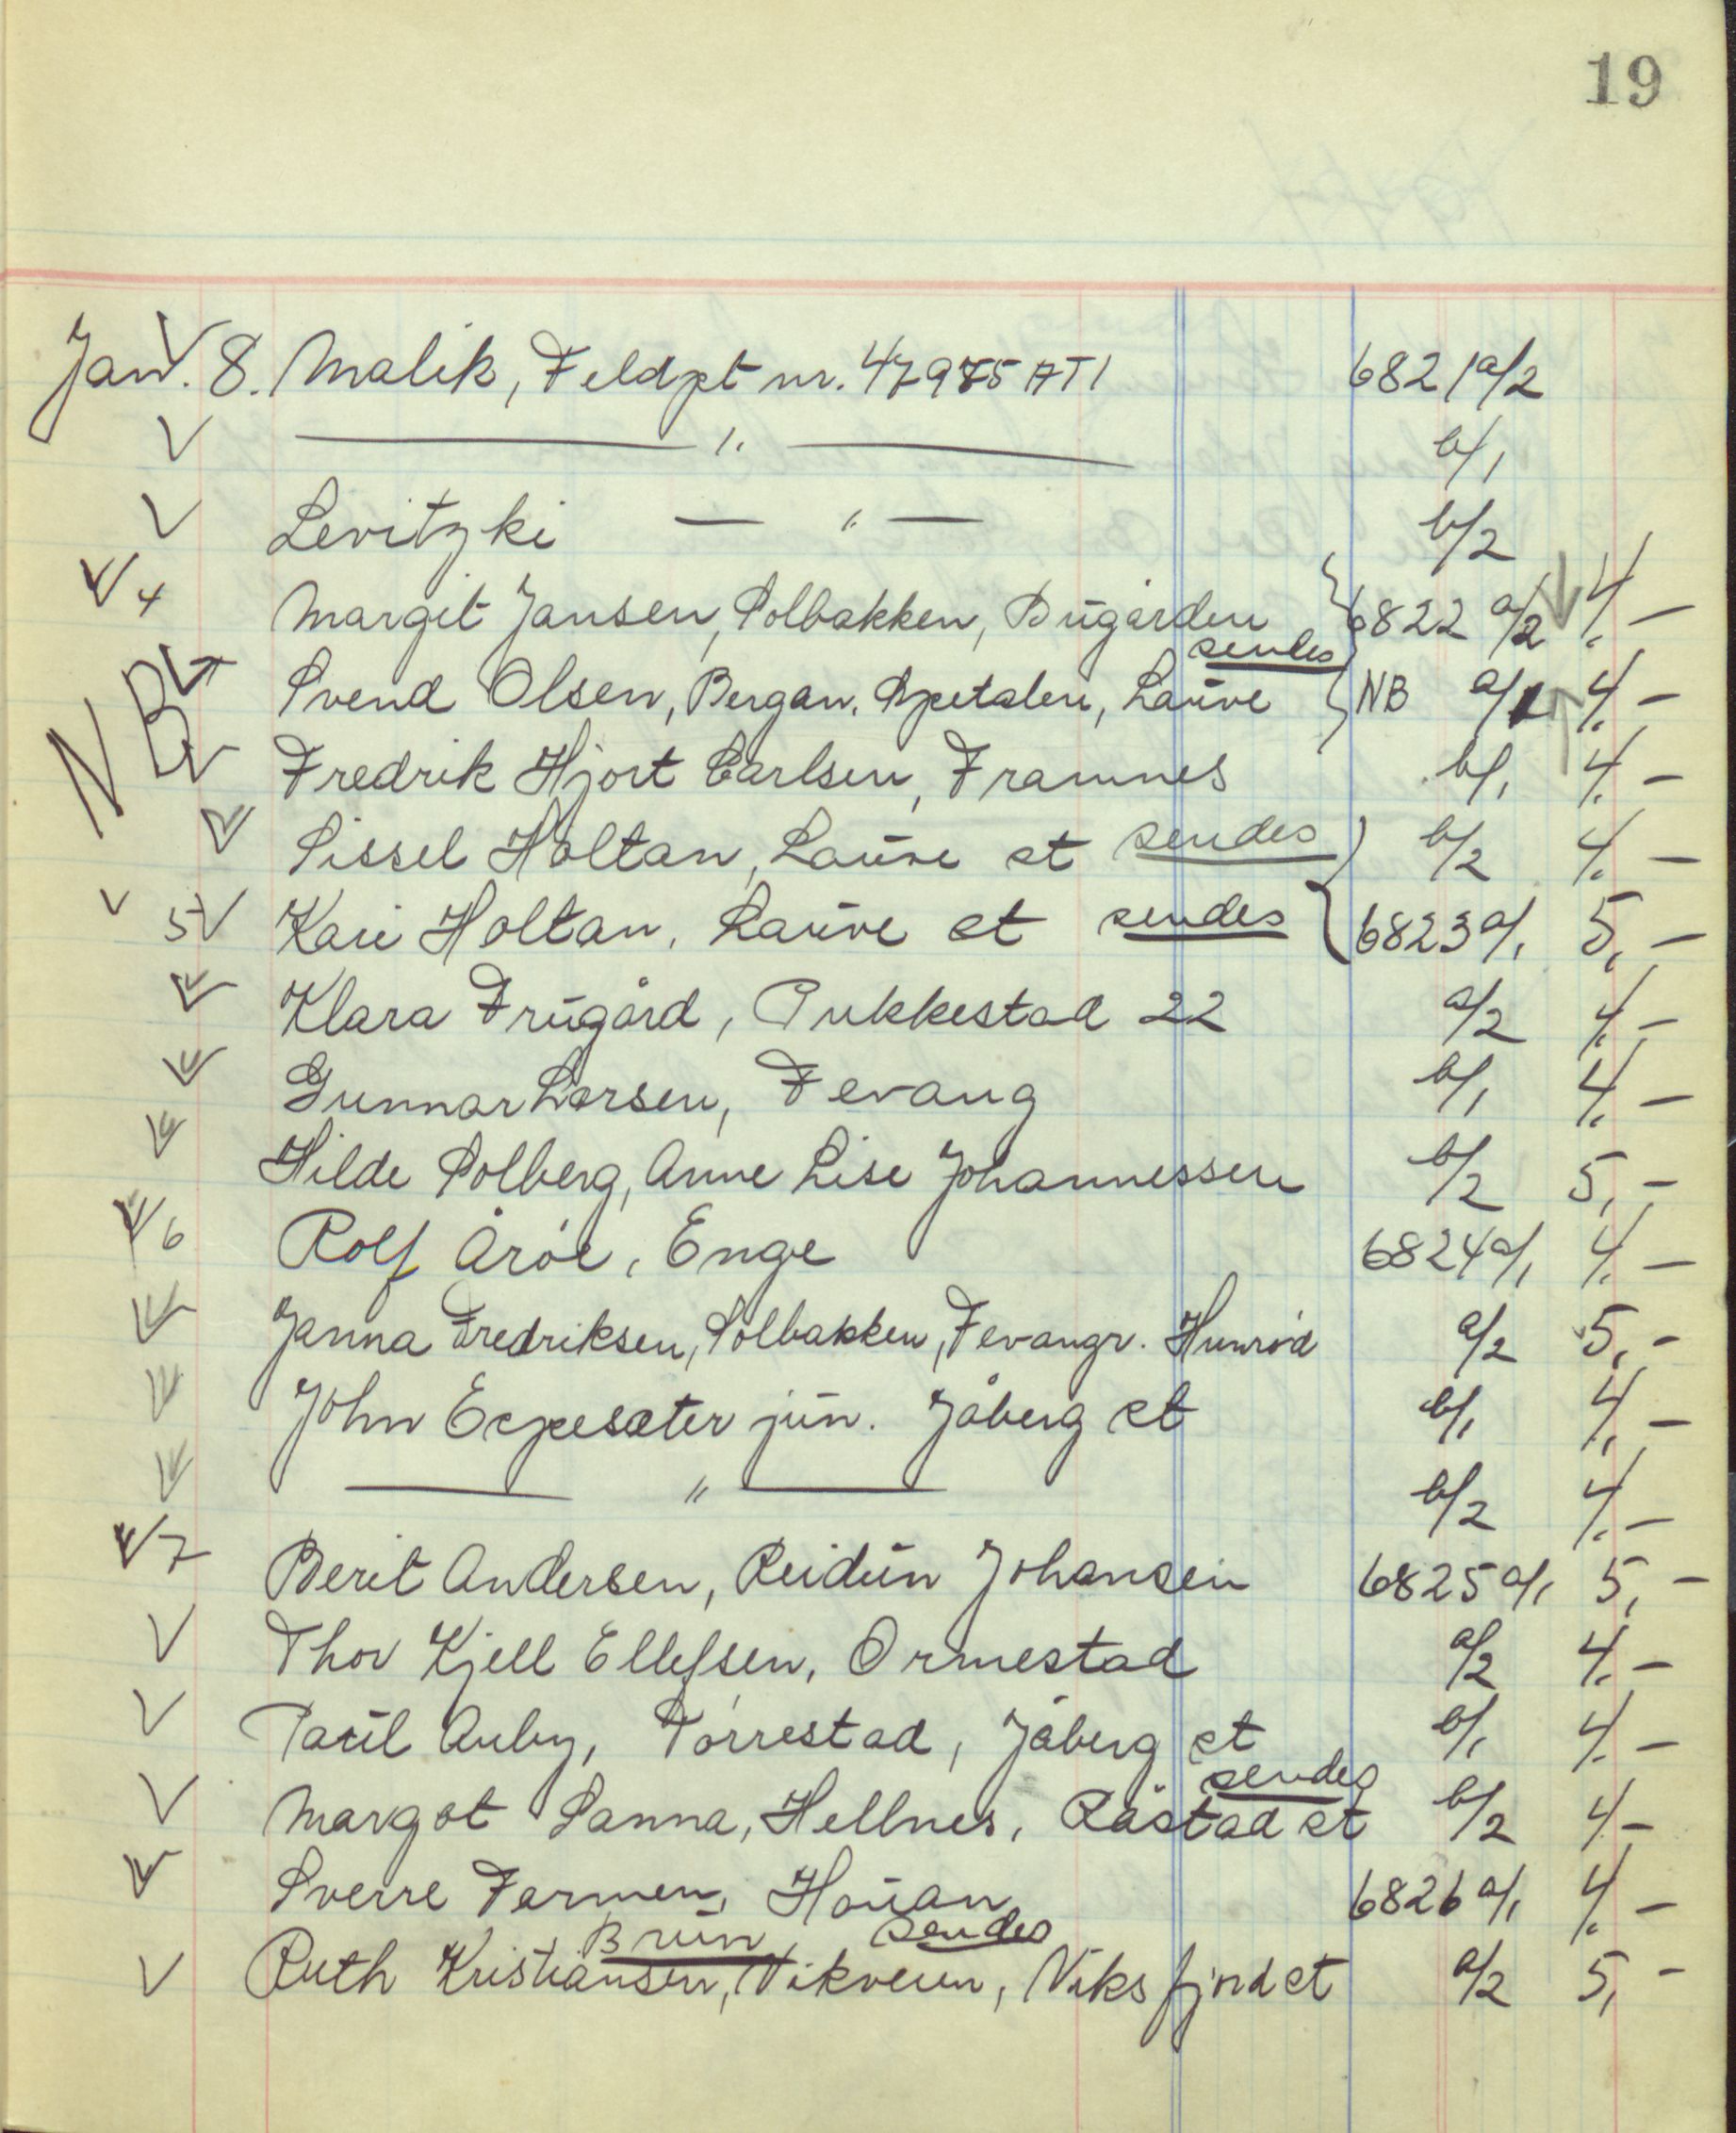 19
Jan. 8. Malik, Feldpt nr. 47975 AT1 6821 a/2
— " — b/1
Levitzki — " — b/2
4 Margit Jansen, Solbakken, Bugården 6822 a/2 4.-
sendes
NB Svend Olsen, Bergan, Spetalen, Lauve NB a/1 4.-
Fredrik Hjort Carlsen, Framnes b/1 4.-
Sissel Holtan, Lauve st sendes b/2 4.-
5 Kari Holtan, Lauve st sendes 6823 a/1 5,-
Klara Frugård, Pukkestad 22 a/2 4.-
Gunnar Larsen, Fevang b/1 4.-
Hilde Solberg, Anne Lise Johannessen b/2 5,-
6 Rolf Årøe, Enge 6824 a/1 4.-
Janna Fredriksen, Solbakken, Fevangr. Hunrød a/2 5,-
John Espesæter jun. Jåberg st b/1 4,-
— " — b/2 4.-
7 Berit Andersen, Reidun Johansen 6825 a/1 5,-
Thor Kjell Ellefsen, Ormestad a/2 4.-
Paul Auby, Tørrestad, Jåberg st b/1 4.-
sendes
Margot Sanna, Hellnes, Råstad st b/2 4-
Sverre Farmen, Hauan 6826 a/1 4.-
Brun sendes
Ruth Kristiansen, Vikveien, Viksfjord st a/2 5,-